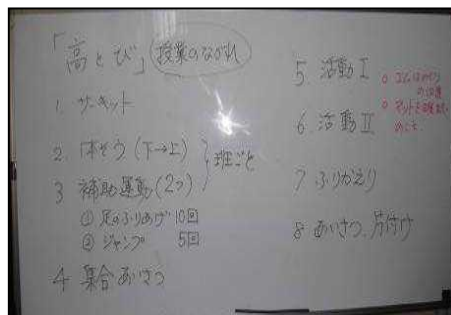 「高とび」 授業のながれ
1. サーキット
2. 体そう (下→上)
3 補助運動(2つ)
班ごと
① 足のふりあげ 10回
② ジャンプ 5回
4 集合 あいさつ
5. 活動Ⅰ
6. 活動Ⅱ
7 ふりかえり
8 あいさつ、片付け